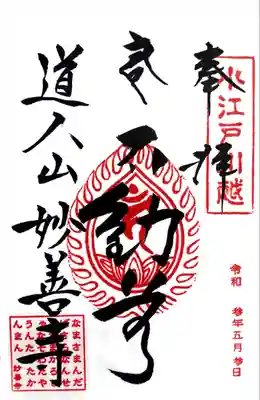 小江戸川越
奉拝
不動尊
道人山妙善寺
令和 参年五月参日
なまさまんだ
ばさらなんせ
んだまかろし
やだそわたや
うんたらたか
んまん 妙善寺